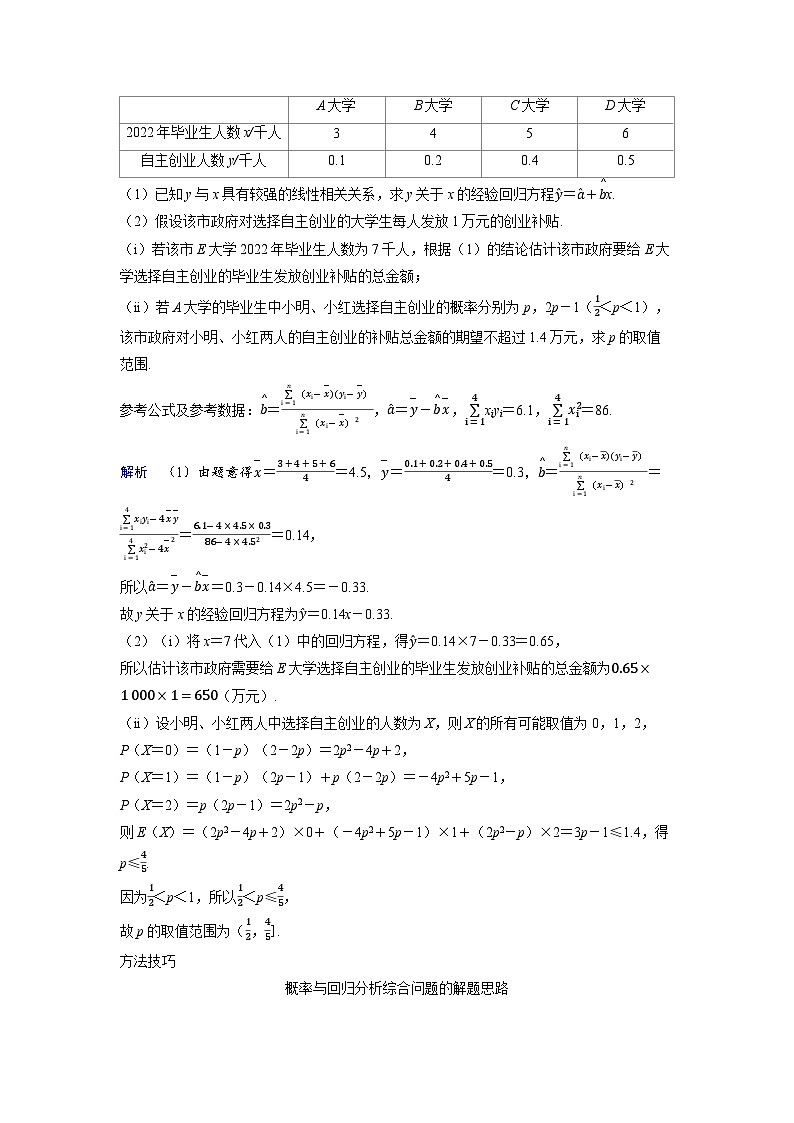 A大学 B大学 C大学 D大学
2022年毕业生人数x/千人 3 4 5 6
自主创业人数y/千人 0.1 0.2 0.4 0.5
（1）已知y与x具有较强的线性相关关系，求y关于x的经验回归方程ŷ＝â＋b̂x.
（2）假设该市政府对选择自主创业的大学生每人发放1万元的创业补贴.
（i）若该市E大学2022年毕业生人数为7千人，根据（1）的结论估计该市政府要给E大
学选择自主创业的毕业生发放创业补贴的总金额；
（ii）若A大学的毕业生中小明、小红选择自主创业的概率分别为p，2p－1（1/2＜p＜1），
该市政府对小明、小红两人的自主创业的补贴总金额的期望不超过1.4万元，求p的取值
范围.
参考公式及参考数据：b̂＝∑_{i=1}^{n}(x_i－x̄)(y_i－ȳ)/∑_{i=1}^{n}(x_i－x̄)²，â＝ȳ－b̂x̄，∑_{i=1}^{4}x_iy_i=6.1，∑_{i=1}^{4}x_i²=86.
解析 （1）由题意得x̄＝(3+4+5+6)/4＝4.5，ȳ＝(0.1+0.2+0.4+0.5)/4＝0.3，b̂＝∑_{i=1}^{n}(x_i－x̄)(y_i－ȳ)/∑_{i=1}^{n}(x_i－x̄)²＝
(∑_{i=1}^{4}x_iy_i－4x̄ȳ)/(∑_{i=1}^{4}x_i²－4x̄²)＝(6.1－4×4.5×0.3)/(86－4×4.5²)＝0.14，
所以â＝ȳ－b̂x̄＝0.3－0.14×4.5＝－0.33.
故y关于x的经验回归方程为ŷ＝0.14x－0.33.
（2）（i）将x＝7代入（1）中的回归方程，得ŷ＝0.14×7－0.33＝0.65，
所以估计该市政府需要给E大学选择自主创业的毕业生发放创业补贴的总金额为0.65×
1 000×1＝650（万元）.
（ii）设小明、小红两人中选择自主创业的人数为X，则X的所有可能取值为0，1，2，
P（X＝0）＝（1－p）（2－2p）＝2p²－4p＋2，
P（X＝1）＝（1－p）（2p－1）＋p（2－2p）＝－4p²＋5p－1，
P（X＝2）＝p（2p－1）＝2p²－p，
则E（X）＝（2p²－4p＋2）×0＋（－4p²＋5p－1）×1＋（2p²－p）×2＝3p－1≤1.4，得
p≤4/5.
因为1/2＜p＜1，所以1/2＜p≤4/5，
故p的取值范围为（1/2，4/5］.
方法技巧
概率与回归分析综合问题的解题思路